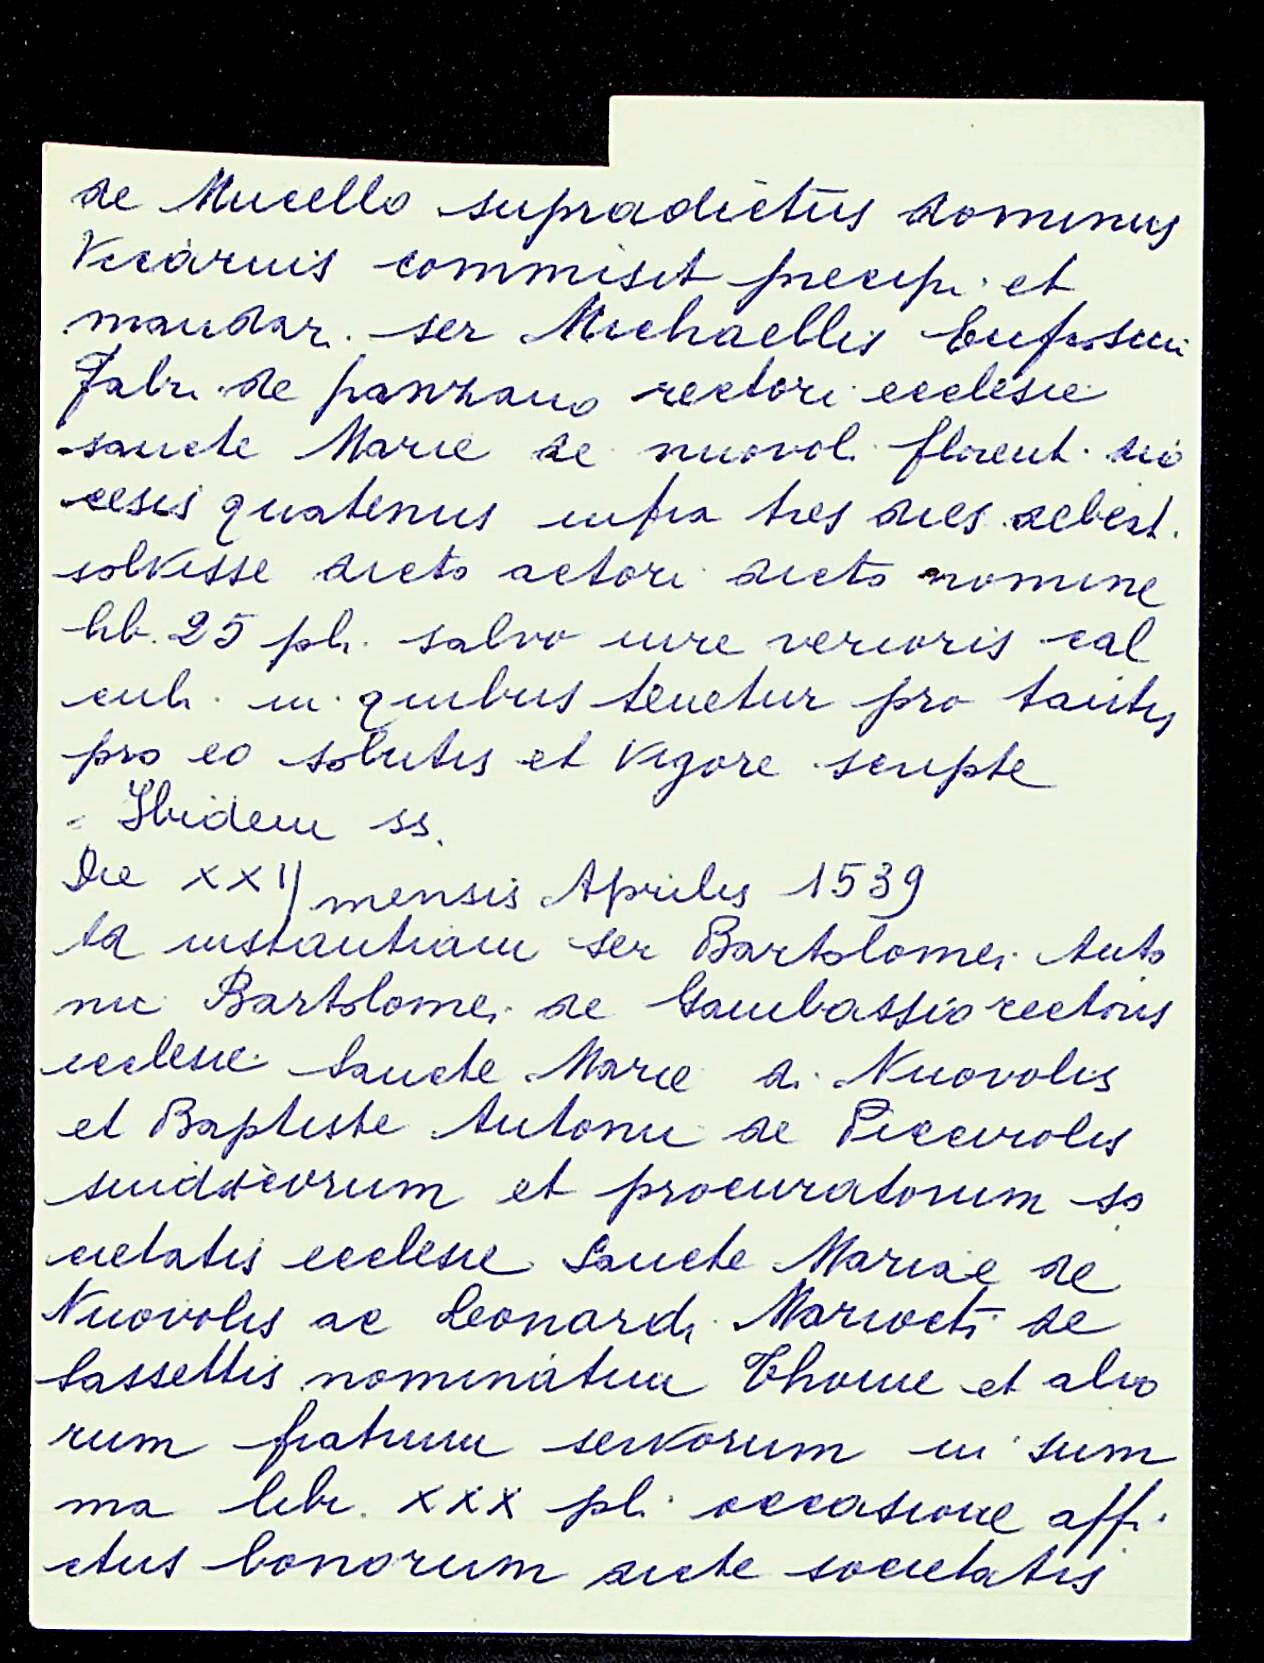 de Mucello supradictus dominus
Vicarius commisit precip. et
mandar. ser Michaellis Eufrosini
Fabri de panzano rectori ecclesie
sancte Marie de nuovol. florent. dio
cesis quatenus infra tres dies debeat.
solvisse dicto actori dicto nomine
lib. 25 pli. salvo iure verioris cal
culi. in quibus tenetur pro tantis
pro eo solutis et vigore scripte
Ibidem ss.
Die XXIJ mensis Aprilis 1539
Ad instantiam ser Bartolomei Anto
nii Bartolomei de Gambassio rectoris
ecclesie Sancte Marie di Nuovolis
et Baptiste Antonii de Picciuolis
sindicorum et procuratorum so
cietatis ecclesie Sancte Mariae de
Nuovolis ac Leonardi Mariocti de
Sassettis nominatim Thome et alio
rum fratrum servorum in sum
ma libr. XXX pli. occasione affi
ctus bonorum dicte societatis